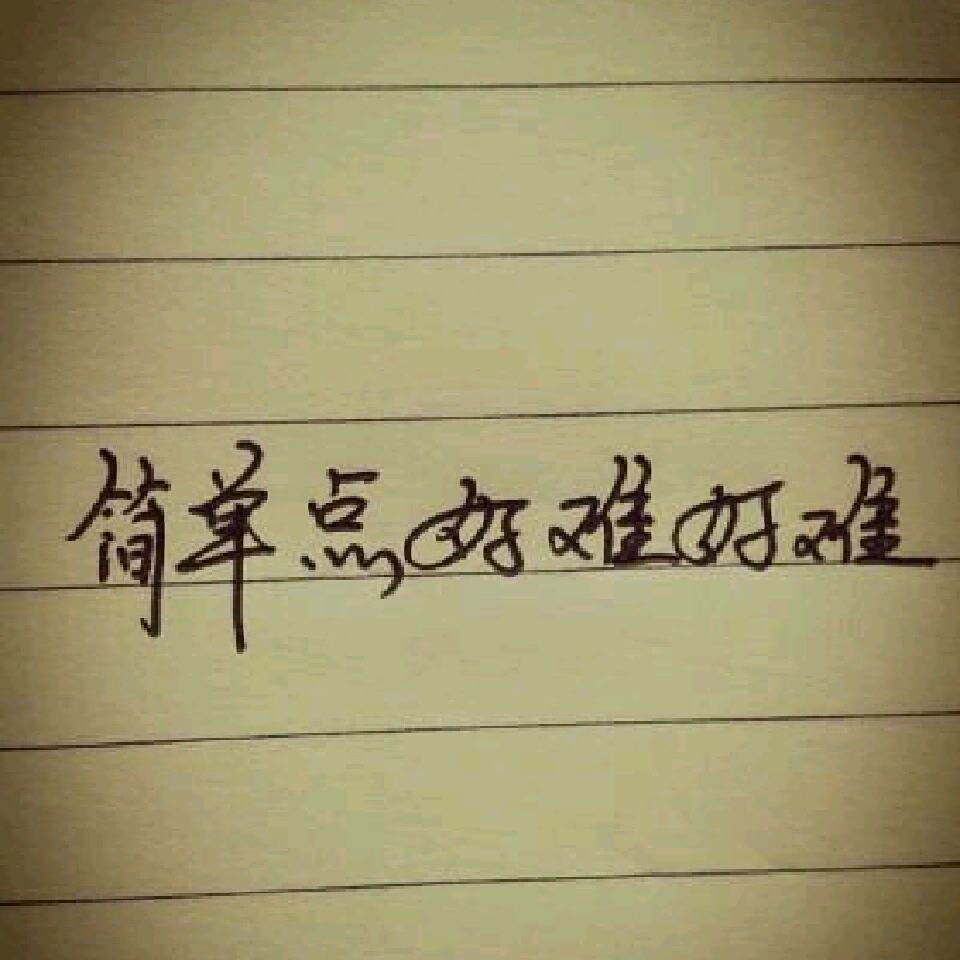 简单点好难好难